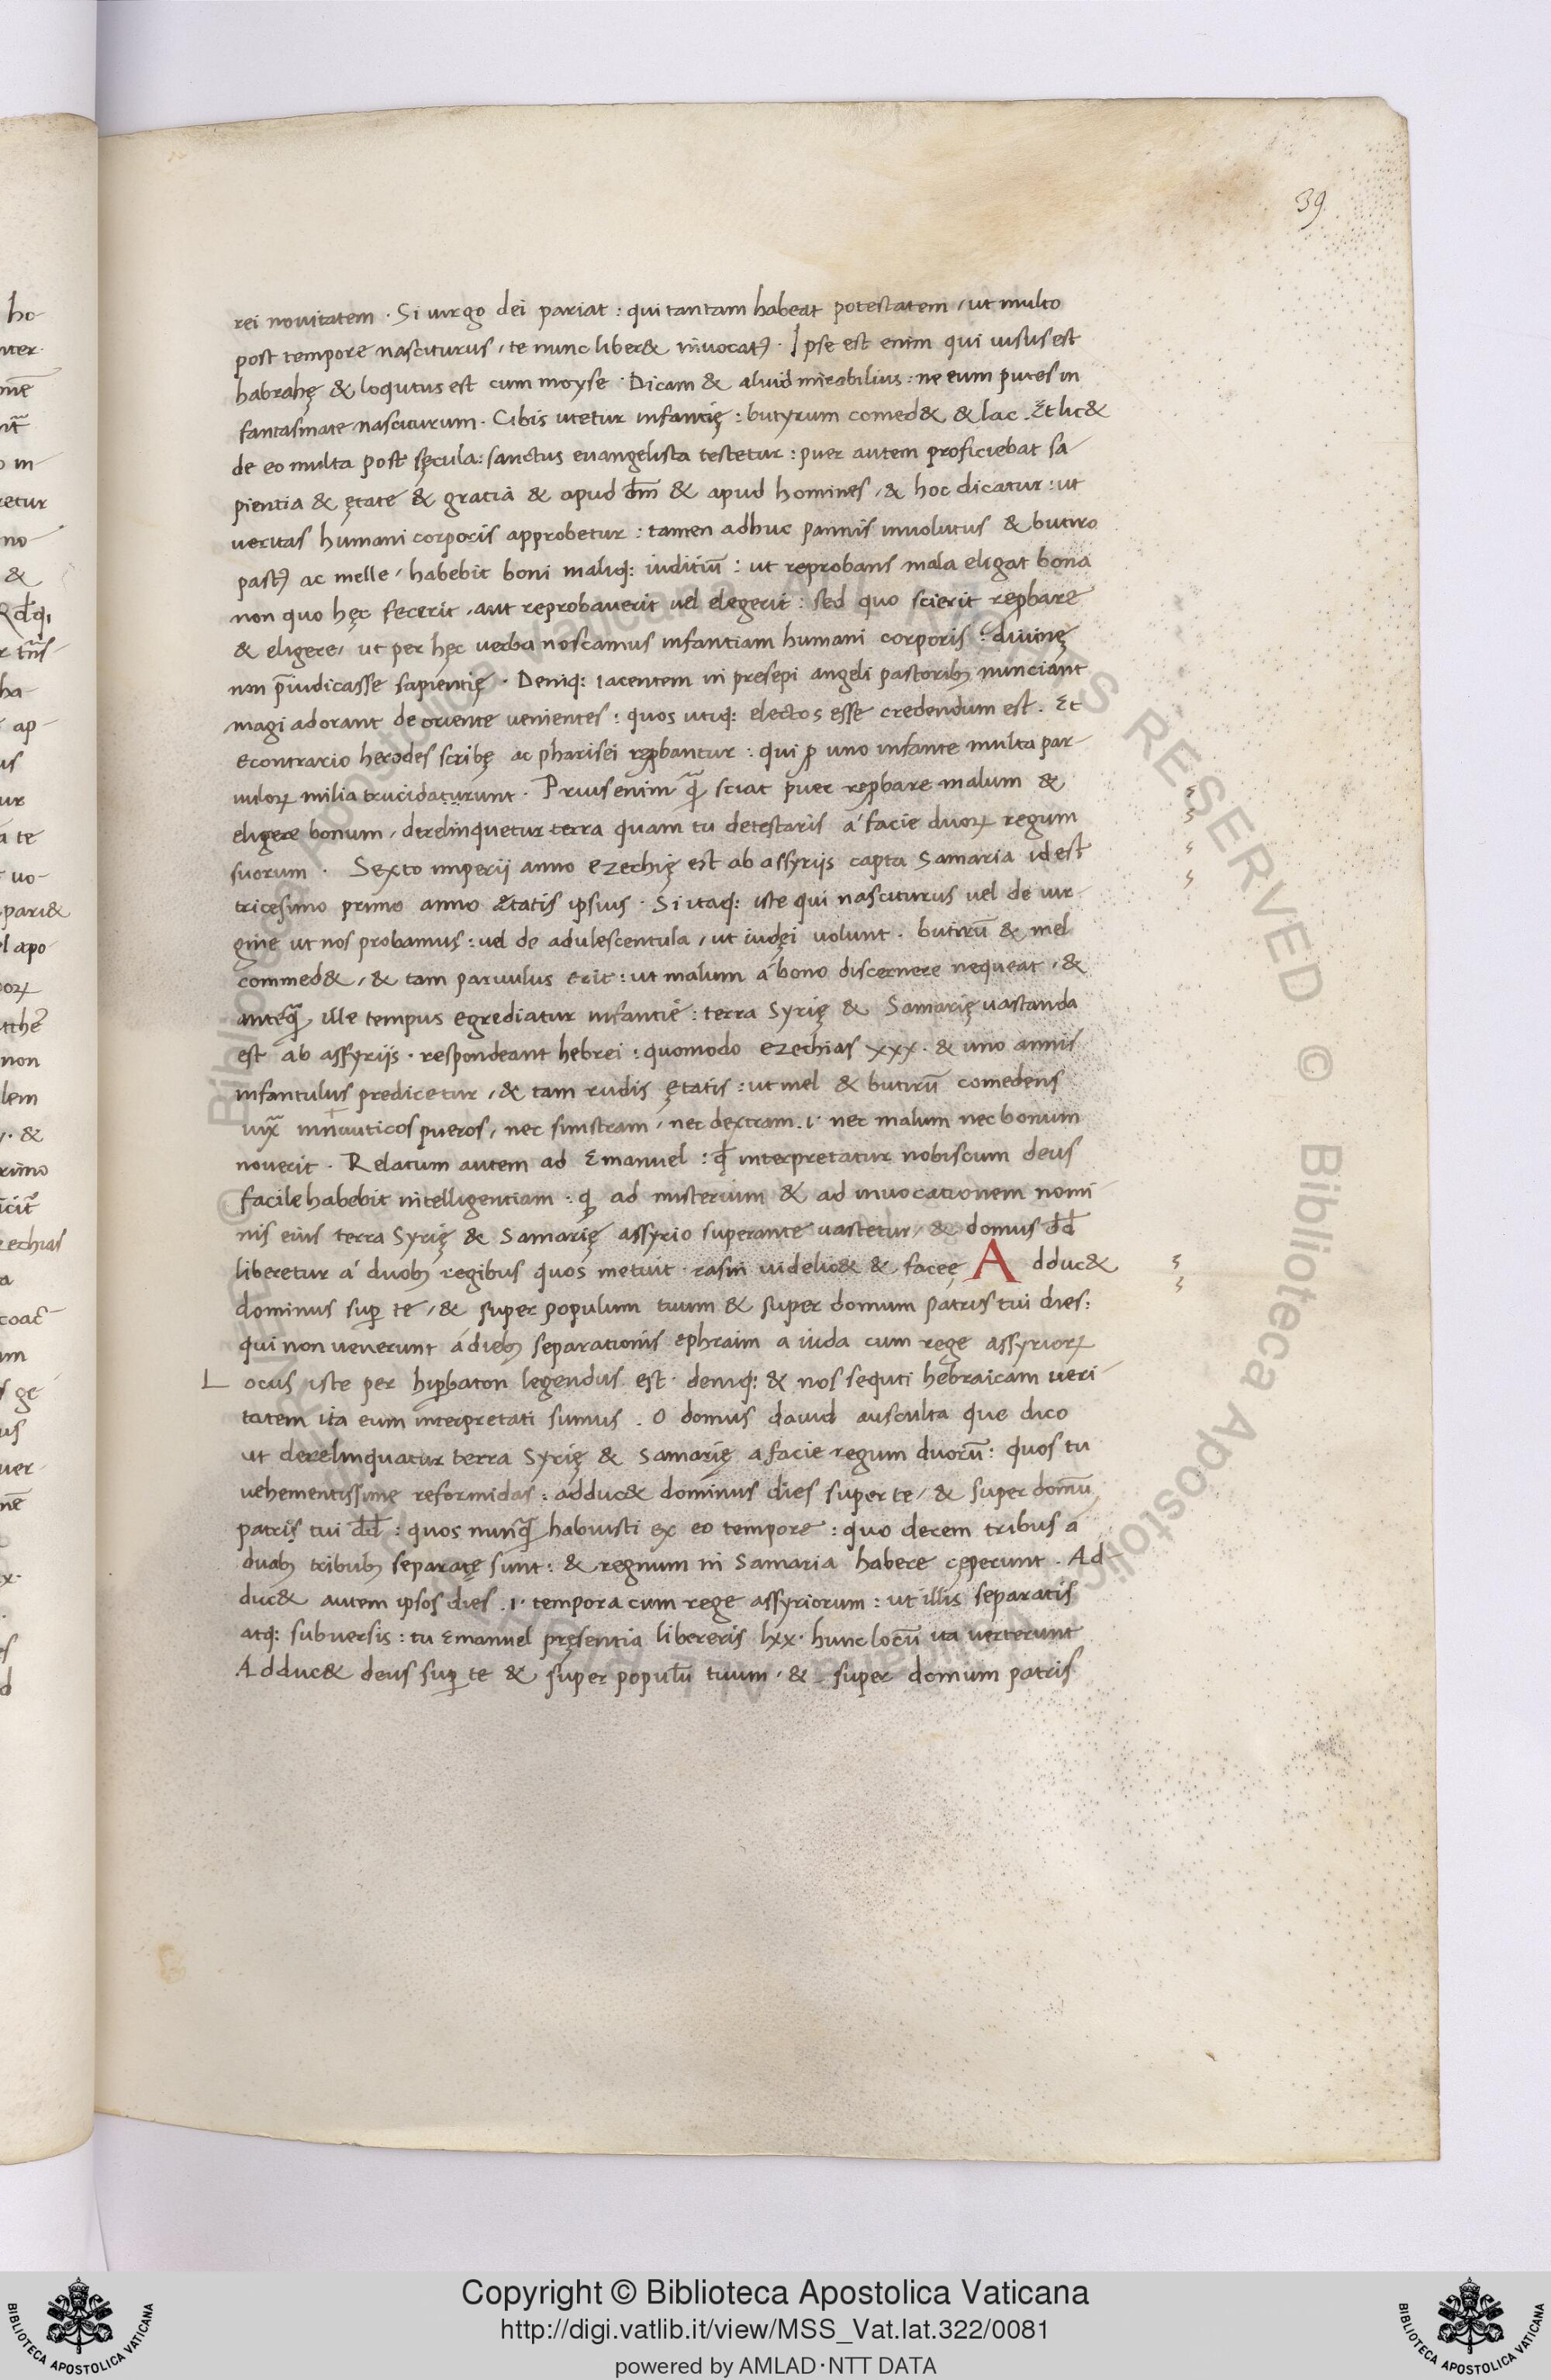 39
rei nouitatem · Si uirgo dei pariat : qui tantam habeat potestatem / ut multo
post tempore nasciturus / te nunc liber& inuocatꝰ · Ipse est enim qui uisus est
habrahę & loqutus est cum moyse · Dicam & aliud mirabilius : ne eum putes in
fantasmate nasciturum · Cibis utetur infantię : butyrum comed& & lac . Et lic&
de eo multa post sęcula : sanctus euangelista testetur : puer autem proficiebat sa-
pientia & ętate & gratia & apud dm̄ & apud homines / & hoc dicatur : ut
ueritas humani corporis approbetur : tamen adhuc pannis inuolutus & butiro
pastꝰ ac melle / habebit boni maliq: iuditiū : ut reprobans mala eligat bona
non quo hęc fecerit / aut reprobauerit uel elegerit : sed quo scierit reꝓbare
& eligere / ut per hęc uerba noscamus infantiam humani corporis : diuinę
non p̄iudicasse sapientię · Deniq: iacentem in presepi angeli pastoribꝫ nunciant
magi adorant de oriente uenientes : quos utiq: electos esse credendum est . Et
econtrario herodes scribę ac pharisei reꝓbantur : qui ꝓ uno infante multa par-
uuloꝝ milia trucidaturunt · Prius enim qᷓ sciat puer reꝓbare malum &
eligere bonum / derelinquetur terra quam tu detestaris á facie duoꝝ regum
suorum · Sexto imperij anno ezechię est ab assyrijs capta Samaria id est
tricesimo primo anno ętatis ipsius · Si itaq: iste qui nasciturus uel de uir-
gine ut nos probamus : uel de adulescentula / ut iudęi uolunt . butirū & mel
commed& / & tam paruulus erit : ut malum á bono discernere nequeat / &
anteqᷓ ille tempus egrediatur infantię : terra Syrię & Samarię uastanda
est ab assyrijs · respondeant hebrei : quomodo ezechias xxx · & uno annis
infantulus predicetur / & tam rudis ętatis : ut mel & butirū comedens
nec sinistram / nec dextram .i· nec malum nec bonum
nouerit · Relatum autem ad Emanuel : qđ interpretatur nobiscum deus
facile habebit intelligentiam : ꝙ ad misterium & ad inuocationem nomi-
nis eius terra Syrię & Samarię assyrio superante uastetur / & domus dd̄
liberetur á duobꝫ regibus quos metuit · rasin uidelic& & faceę A dduc&
dominus suꝑ te / & super populum tuum & super domum patris tui dies :
qui non uenerunt á diebꝫ separationis ephraim a iuda cum rege assyrioꝝ
L ocus iste per hiꝑbaton legendus est · deniq: & nos sequti hebraicam ueri-
tatem ita eum interpretati sumus . O domus dauid ausculta que dico
ut derelinquatur terra Syrię & Samarię a facie regum duorū : quos tu
uehementissime reformidas : adduc& dominus dies super te / & super domū
patris tui dd̄ : quos nunqᷓ habuisti ex eo tempore : quo decem tribus a
duabꝫ tribubꝫ separatę sunt : & regnum in Samaria habere cęperunt . Ad-
duc& autem ipsos dies .i· tempora cum rege assyriorum : ut illis separatis
atq: subuersis : tu Emanuel pręsentia libereris · lxx · hunc locū ita uerterunt
Adduc& deus suꝑ te & super populū tuum · & super domum patris
Copyright © Biblioteca Apostolica Vaticana
http://digi.vatlib.it/view/MSS_Vat.lat.322/0081
powered by AMLAD·NTT DATA